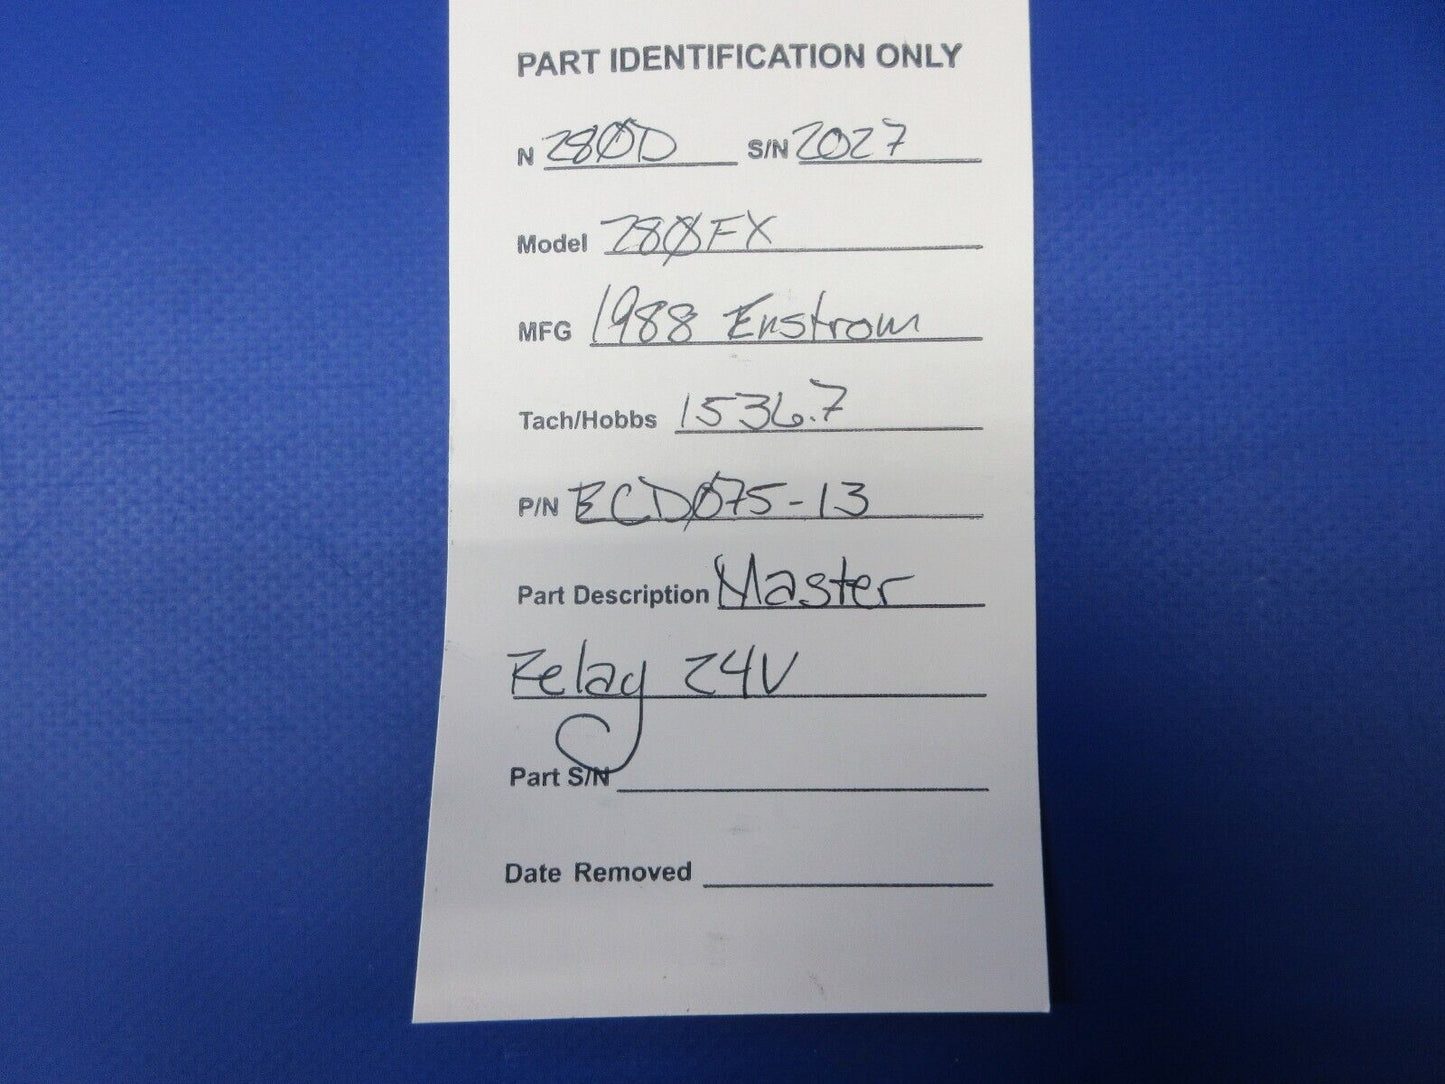 PART IDENTIFICATION ONLY
N 280D S/N 2027
Model 280FX
MFG 1988 Enstrom
Tach/Hobbs 1536.7
P/N ECD075-13
Part Description Master
Relay 24V
Part S/N
Date Removed